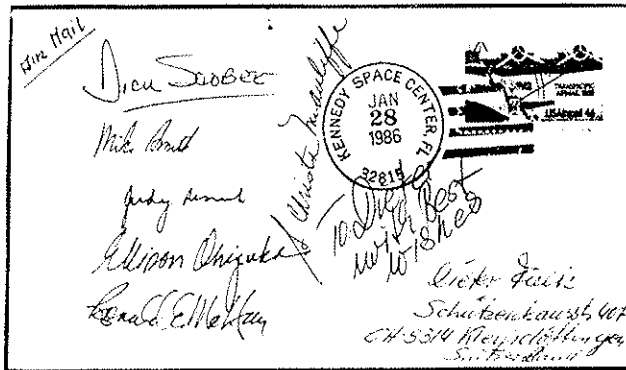 Air Mail
Dick Scobee
Mike Smith
Judy Resnik
Ellison Onizuka
Ronald E McNair
Christa McAuliffe
KENNEDY SPACE CENTER, FL
JAN
28
1986
32815
TRANSPACIFIC
AIRMAIL
USAirmail 44
To Dieter
with Best
Wishes
Dieter
Schützenhausstr. 407
CH-5314 Kleindöttingen
Switzerland